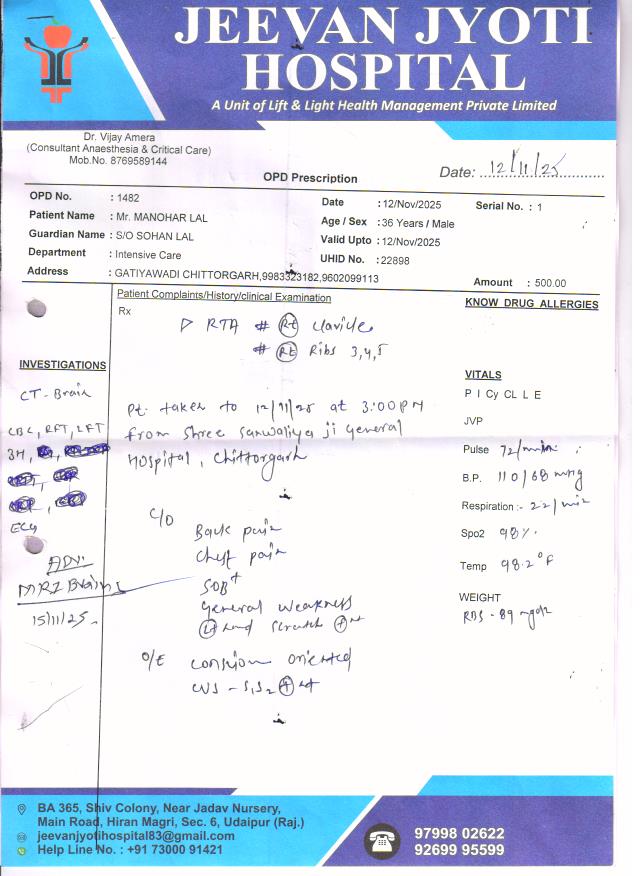 JEEVAN JYOTI
HOSPITAL
A Unit of Lift & Light Health Management Private Limited
Dr. Vijay Amera
(Consultant Anaesthesia & Critical Care)
Mob.No. 8769589144
OPD Prescription
Date: 12/11/25
OPD No. : 1482
Date : 12/Nov/2025
Serial No. : 1
Patient Name : Mr. MANOHAR LAL
Age / Sex : 36 Years / Male
Guardian Name : S/O SOHAN LAL
Valid Upto : 12/Nov/2025
Department : Intensive Care
UHID No. : 22898
Address : GATIYAWADI CHITTORGARH,9983323182,9602099113
Amount : 500.00
Patient Complaints/History/clinical Examination
KNOW DRUG ALLERGIES
Rx
RTA # Rt Clavicle
# Rt Ribs 3,4,5
INVESTIGATIONS
CT-Brain
CBC, RFT, LFT
ECG
ADV:
MRI Brain
15/11/25
Pt. taken to 12/11/25 at 3:00 PM
from Shree Sanwaliya ji General
Hospital, Chittorgarh
C/O
Back pain
Chest pain
SOB+
General weakness
O/E
oriented
S1S2
VITALS
P I Cy CL L E
JVP
Pulse 72/min
B.P. 110/68 mmHg
Respiration:- 22/min
Spo2 98%
Temp 98.2°F
WEIGHT
RBS - 89 mg/dl
BA 365, Shiv Colony, Near Jadav Nursery,
Main Road, Hiran Magri, Sec. 6, Udaipur (Raj.)
jeevanjyotihospital83@gmail.com
Help Line No. : +91 73000 91421
97998 02622
92699 95599